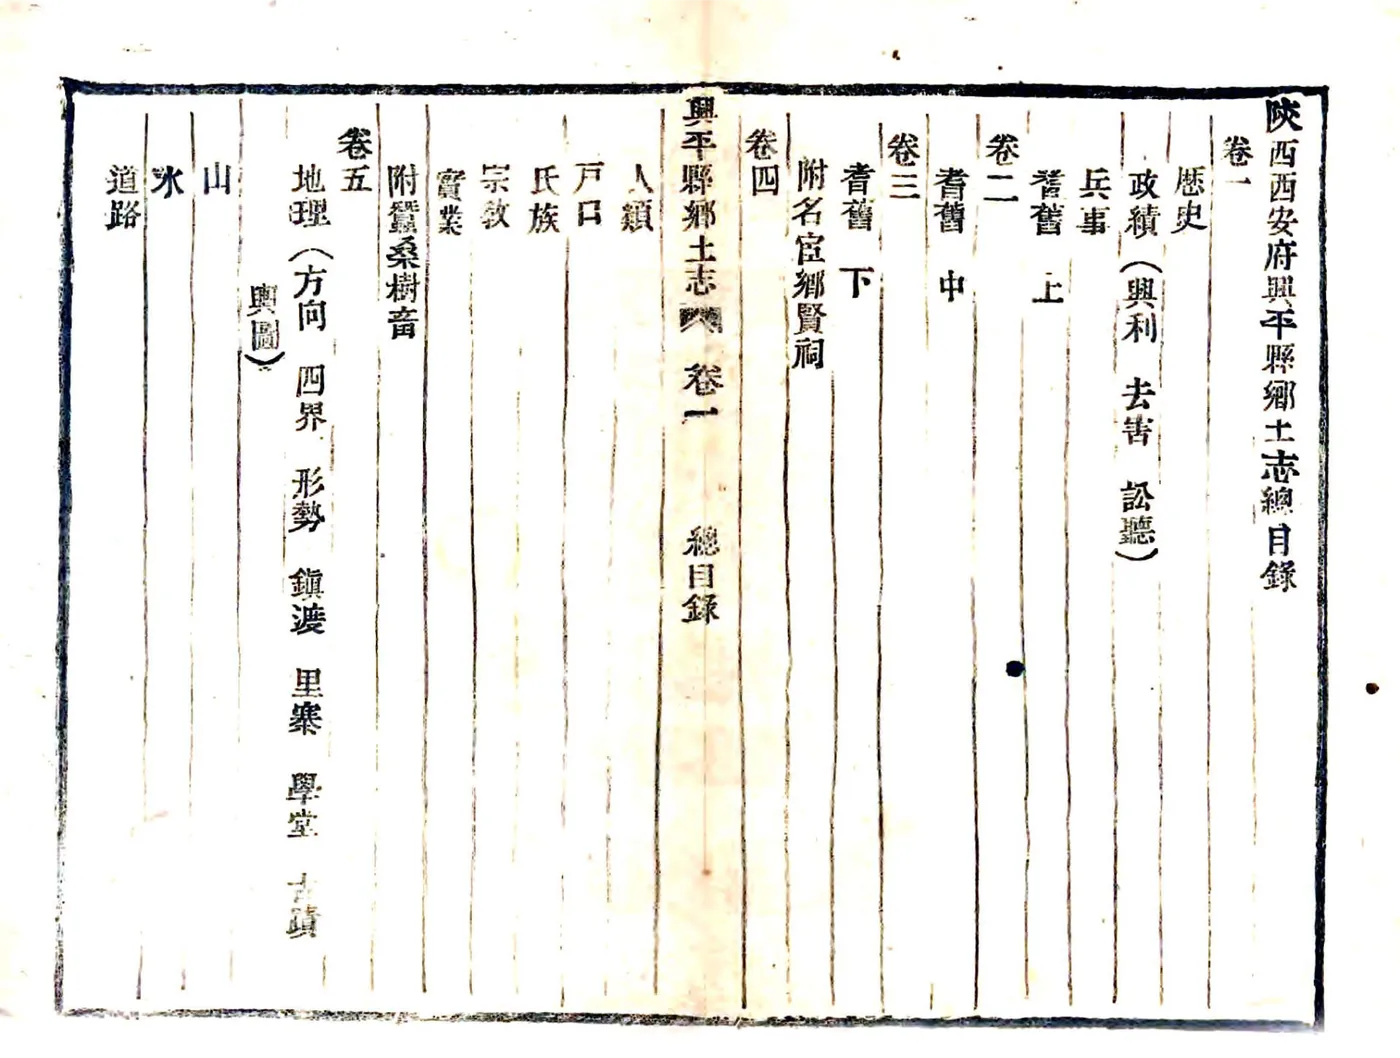 陝西西安府興平縣鄉土志總目錄
卷一
歷史
政績（興利 去害 訟聽）
兵事
耆舊 上
卷二
耆舊 中
卷三
耆舊 下
附名宦鄉賢祠
卷四
興平縣鄉土志 卷一 總目錄
人類
戶口
氏族
宗教
實業
附蠶桑樹畜
卷五
地理（方向 四界 形勢 鎮渡 里寨 學堂 古蹟
輿圖）
山
水
道路